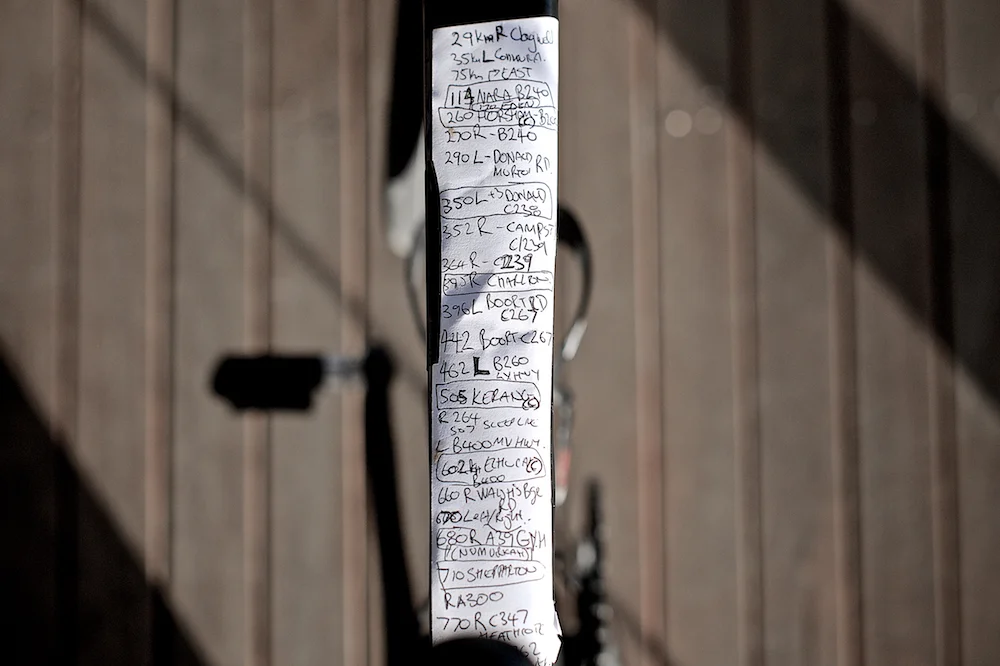 29km R Clagwell
35km L CONNURA.
75km EAST
114 NARA B240
260 HORSHAM B240
270R - B240
290 L - DONALD
MURTOA RD.
350L +3 DONALD
C238
352 R - CAMPST
C/239
364 R - C239
390R CHARLTON
396L BOORT RD
C267
442 BOORT C267
462 L B260
LXHWY
505 KERANG (C)
R 264
507
L B400 MV HWY.
602 (C)
B400
660 R WALSH'S Bge
RD
670 Left/Right.
680 R A39 GVH
(NUMURKAH)
710 SHEPPARTON
R A300
770 R C347
HEATHCOTE